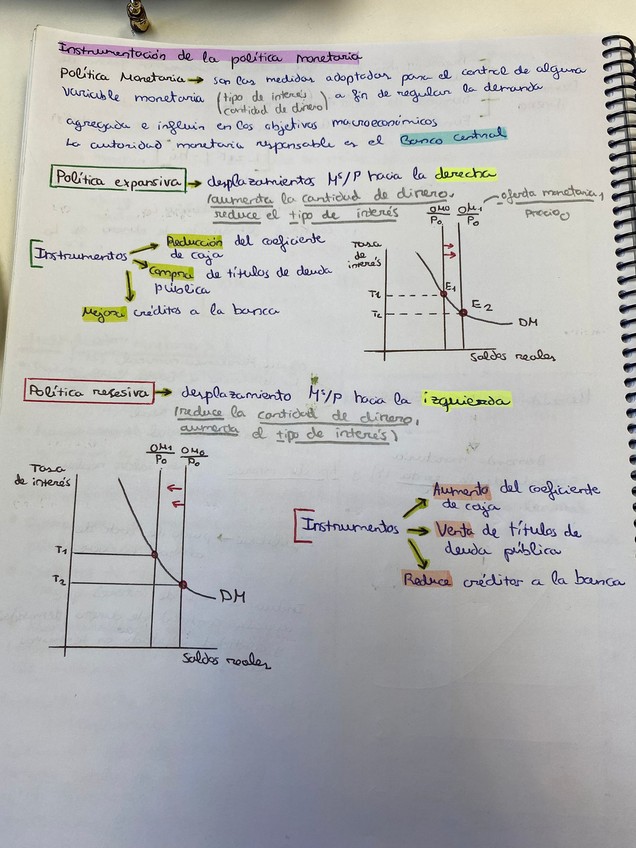 Instrumentación de la política monetaria
Política Monetaria → son las medidas adoptadas para el control de alguna
variable monetaria (tipo de interés cantidad de dinero) a fin de regular la demanda
agregada e influir en los objetivos macroeconómicos
La autoridad monetaria responsable es el Banco Central
Política expansiva → desplazamientos Mˢ/P hacia la derecha
(aumenta la cantidad de dinero,
reduce el tipo de interés
OM0/P0 OM1/P0 oferta monetaria, Precio0
Instrumentos → Reducción del coeficiente
de caja
Compra de títulos de deuda
pública
Mejora créditos a la banca
Tasa
de
interés
T1
T2
E1
E2
DM
Saldos reales
Política resesiva → desplazamiento Mˢ/P hacia la izquierda
(reduce la cantidad de dinero,
aumenta el tipo de interés)
OM1/P0 OM0/P0
Tasa
de interés
T1
T2
DM
Saldos reales
Instrumentos → Aumento del coeficiente
de caja
Venta de títulos de
deuda pública
Reduce créditos a la banca